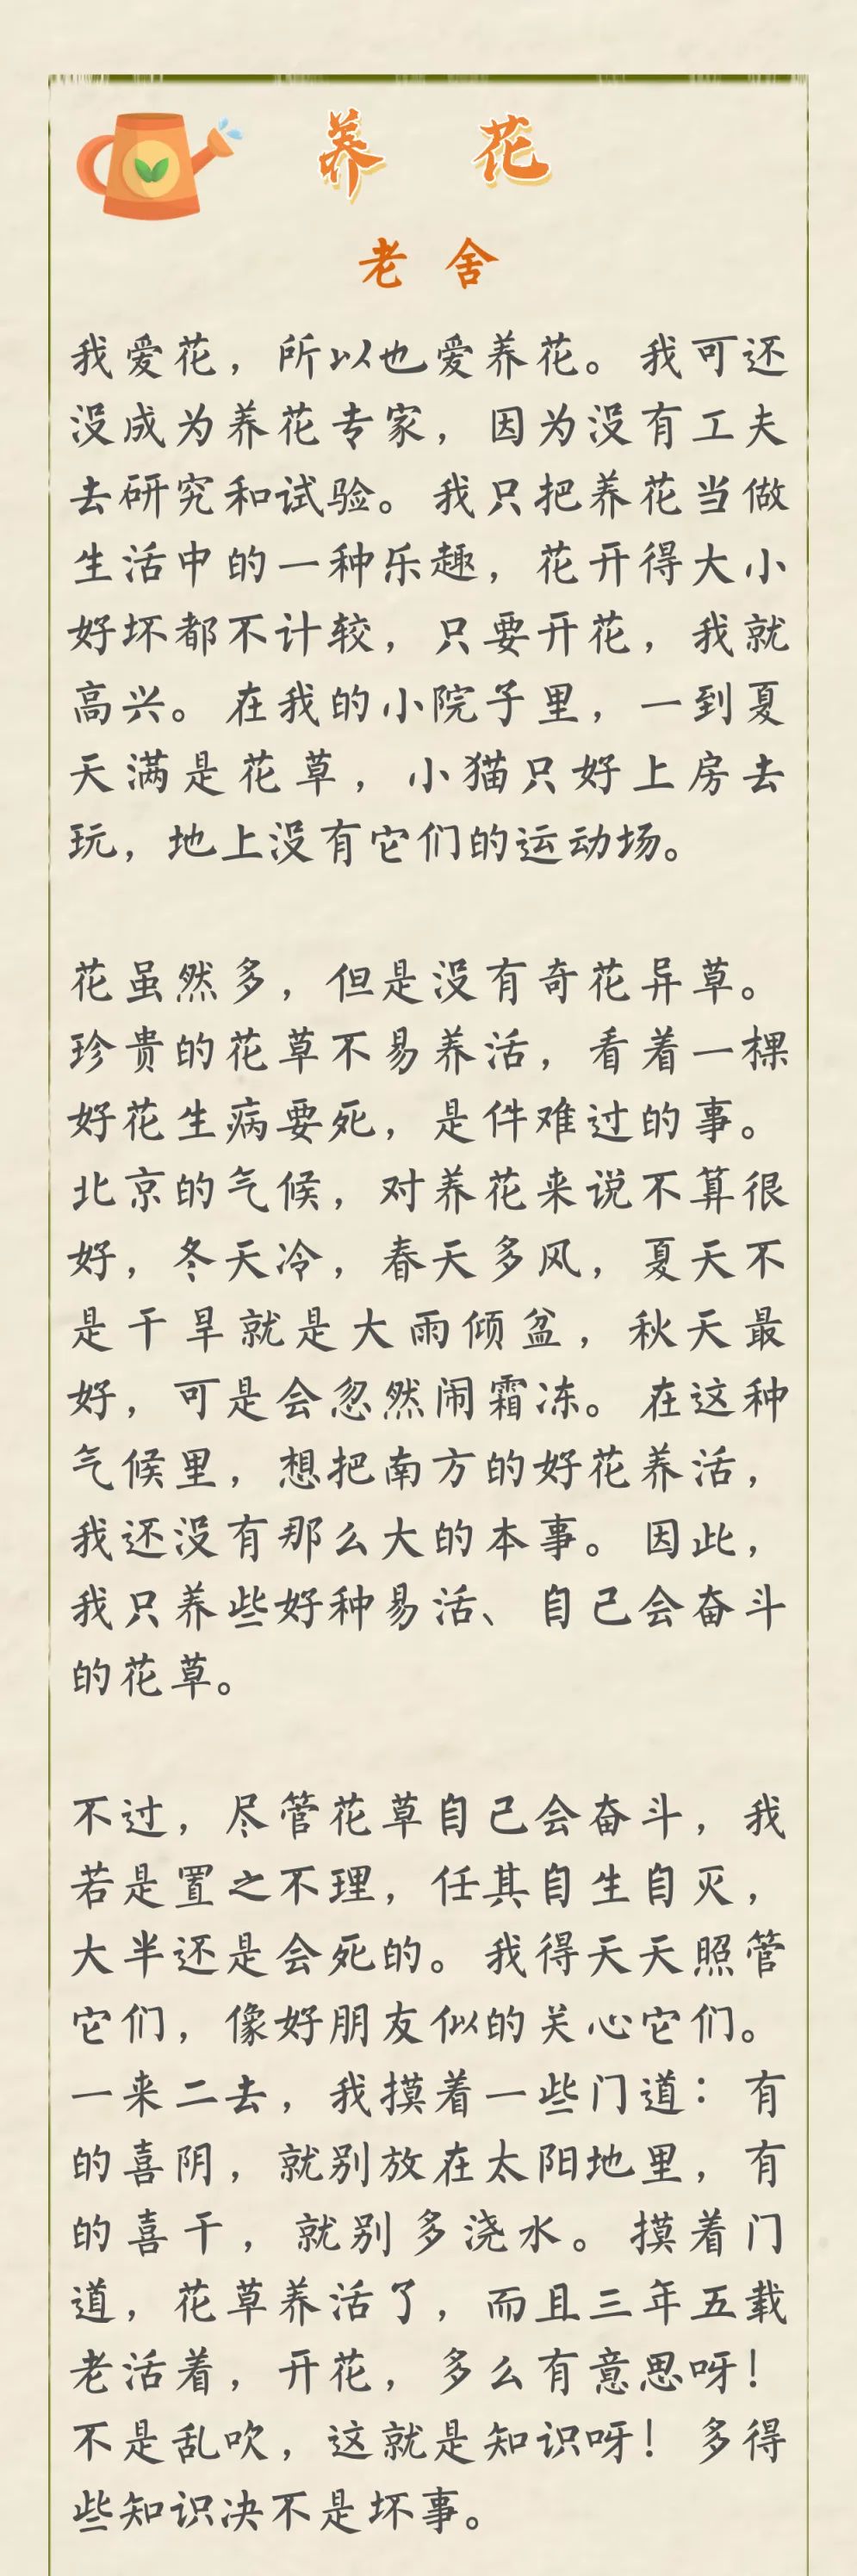 养 花
老 舍
我爱花，所以也爱养花。我可还
没成为养花专家，因为没有工夫
去研究和试验。我只把养花当做
生活中的一种乐趣，花开得大小
好坏都不计较，只要开花，我就
高兴。在我的小院子里，一到夏
天满是花草，小猫只好上房去
玩，地上没有它们的运动场。
花虽然多，但是没有奇花异草。
珍贵的花草不易养活，看着一棵
好花生病要死，是件难过的事。
北京的气候，对养花来说不算很
好，冬天冷，春天多风，夏天不
是干旱就是大雨倾盆，秋天最
好，可是会忽然闹霜冻。在这种
气候里，想把南方的好花养活，
我还没有那么大的本事。因此，
我只养些好种易活、自己会奋斗
的花草。
不过，尽管花草自己会奋斗，我
若是置之不理，任其自生自灭，
大半还是会死的。我得天天照管
它们，像好朋友似的关心它们。
一来二去，我摸着一些门道：有
的喜阴，就别放在太阳地里，有
的喜干，就别多浇水。摸着门
道，花草养活了，而且三年五载
老活着，开花，多么有意思呀！
不是乱吹，这就是知识呀！多得
些知识决不是坏事。